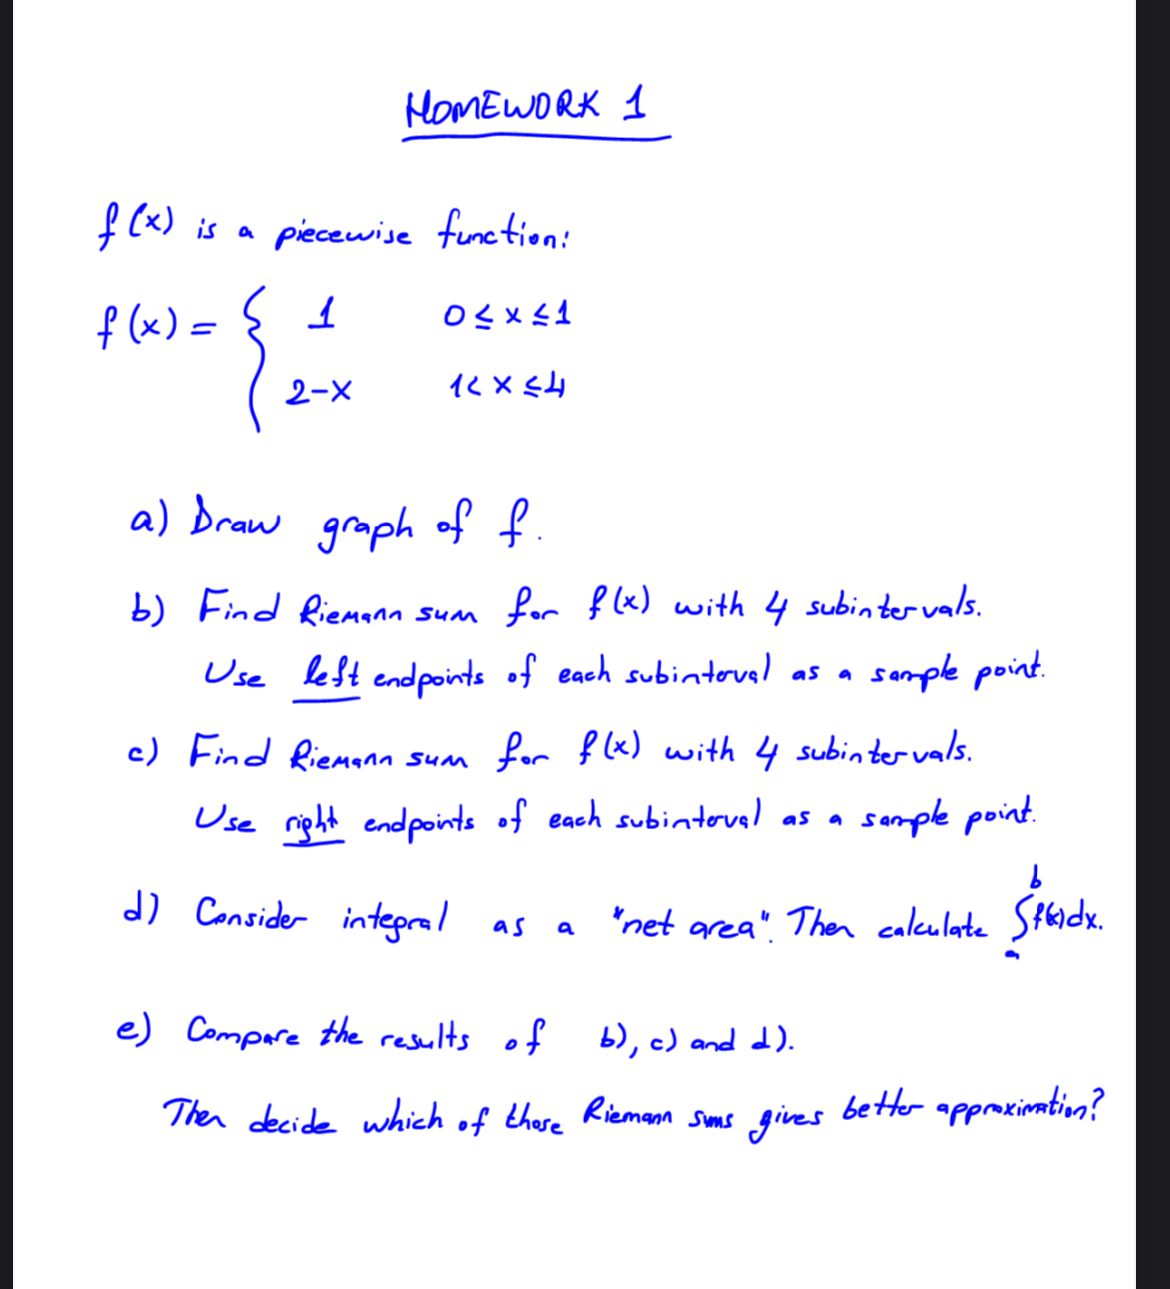 HOMEWORK 1
f(x) is a piecewise function:
f(x) = { 1 0 ≤ x ≤ 1
2-x 1 < x ≤ 4
a) Draw graph of f.
b) Find Riemann sum for f(x) with 4 subintervals.
Use left endpoints of each subinterval as a sample point.
c) Find Riemann sum for f(x) with 4 subintervals.
Use right endpoints of each subinterval as a sample point.
d) Consider integral as a "net area". Then calculate ∫_a^b f(x)dx.
e) Compare the results of b), c) and d).
Then decide which of those Riemann sums gives better approximation?